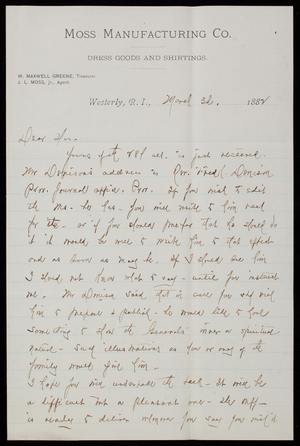 MOSS MANUFACTURING CO.
DRESS GOODS AND SHIRTINGS.
W. MAXWELL GREENE, Treasurer.
J. L. MOSS, Jr., Agent.
Westerly, R.I., March 2d, 1882
Dear Sir
Yours of the 28th is just received.
Mr Denison's address is Denison
Prov. Journal office. Prov. If you wish to edit
the Ms. he has. You will write to him
for the - or if you should prefer that he should do
it it would be well to write him to that effect
and as soon as may be. If I should see him
I should not know what to say - until you instruct
me. Mr Denison said that in case you wish
him to prepare & publish - he would like to have
something to show the Generals inner or spiritual
nature. Such illustrations as you or any of the
family would give him.
I hope you will undertake the task - It will be
a difficult but a pleasant one - the
is ready to deliver whenever you say you will